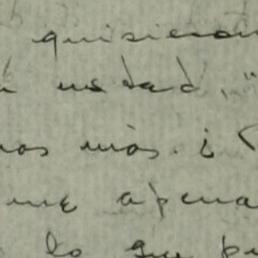 quisieron
usted, "
nos más. ¿
me apena
lo que